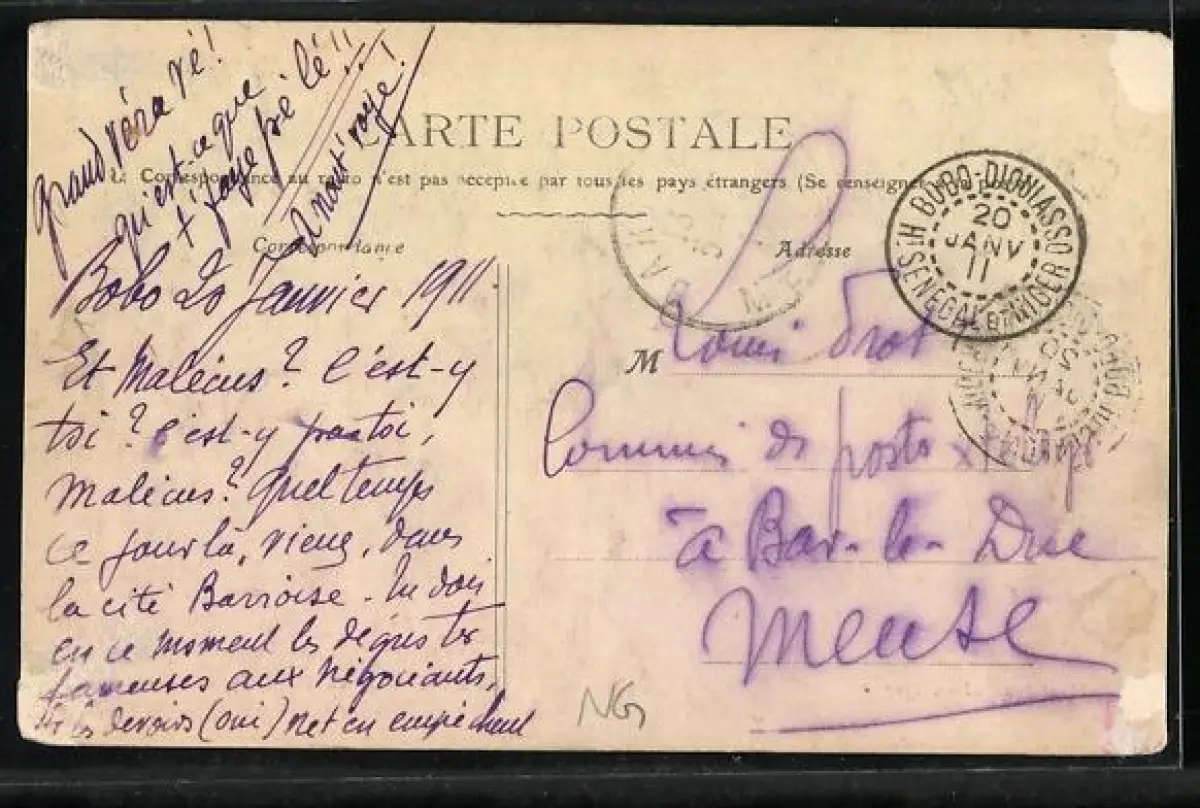 Grand véra vé!
qu'est-ce que
t'faye pé lé!!
A not' voye!
CARTE POSTALE
La Correspondance au recto n'est pas acceptée par tous les pays étrangers (Se renseigner
Correspondance
Adresse
BOBO-DIOULASSO
20
JANV
11
Ht SENEGAL ET NIGER
Bobo 20 Janvier 1911
Et Malécus? C'est-y
toi? C'est-y pas toi,
Malécus? Quel temps
ce jour là, vieux, dans
la cité Barroise. Tu dois
en ce moment les déguster
fameuses aux Négociants,
les devoirs (oui) n't'en empêchent
M Louis
Commis des postes
à Bar-le-Duc
Meuse
NG